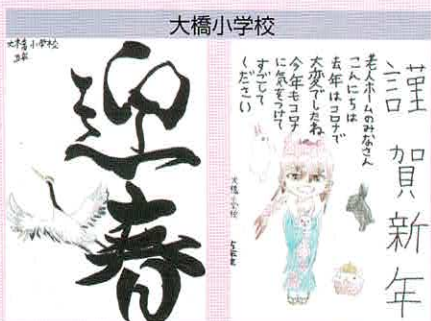 大橋小学校
大橋小学校
五年
迎春
謹賀新年
老人ホームのみなさん
こんにちは
去年はコロナで
大変でしたね
今年もコロナ
に気をつけて
すごして
ください
大橋小学校